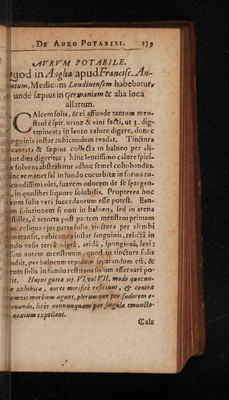 DE AURO POTABILI. 139
AVRVM POTABILE.
quod in Anglia apud Francisc. An-
tonium, Medicum Londinensem habebatur,
unde sæpius in Germaniam & alia loca
allatum.
CAlcem solis, & ei affunde tantum men-
strui è spir. urinæ & vini facti, ut 3. dig.
emineat; in lento calore digere, donec
sanguinis instar rubicundum evadat. Tinctura
& sæpius collecta in balneo per ali-
quot dies digeritur; hinc lentissimo calore spiri-
solvens abstrahitur adhuc semel cohobandus.
remanet sal in fundo cucurbitæ in forma ru-
olei, suavem odorem de se spargen-
in quolibet liquore solubilis. Propterea hoc
solis veri succedaneum esse potest.
solutionem si non in balneo, sed in arena
è retorta post partem menstruum primam
reliqua ejus pars solis tinctura per alembi
transit, rubicunda instar sanguinis, relicta in
fundo vasis terra nigra, arida, spongiosa, levi;
autem menstruum, quod in tinctura solis
per balneum tepidum separandum est, &
solis in fundo restans solum asservari po-
Hujus gutta iij. VI. vel VII. modo quocun-
que exhibitæ, vires mirificè reficiunt, & contra
omnis morbum agunt, plerumque per sudorem e-
vacuando, licet nonnunquam per singula emuncto-
noxium expellant.
Calx